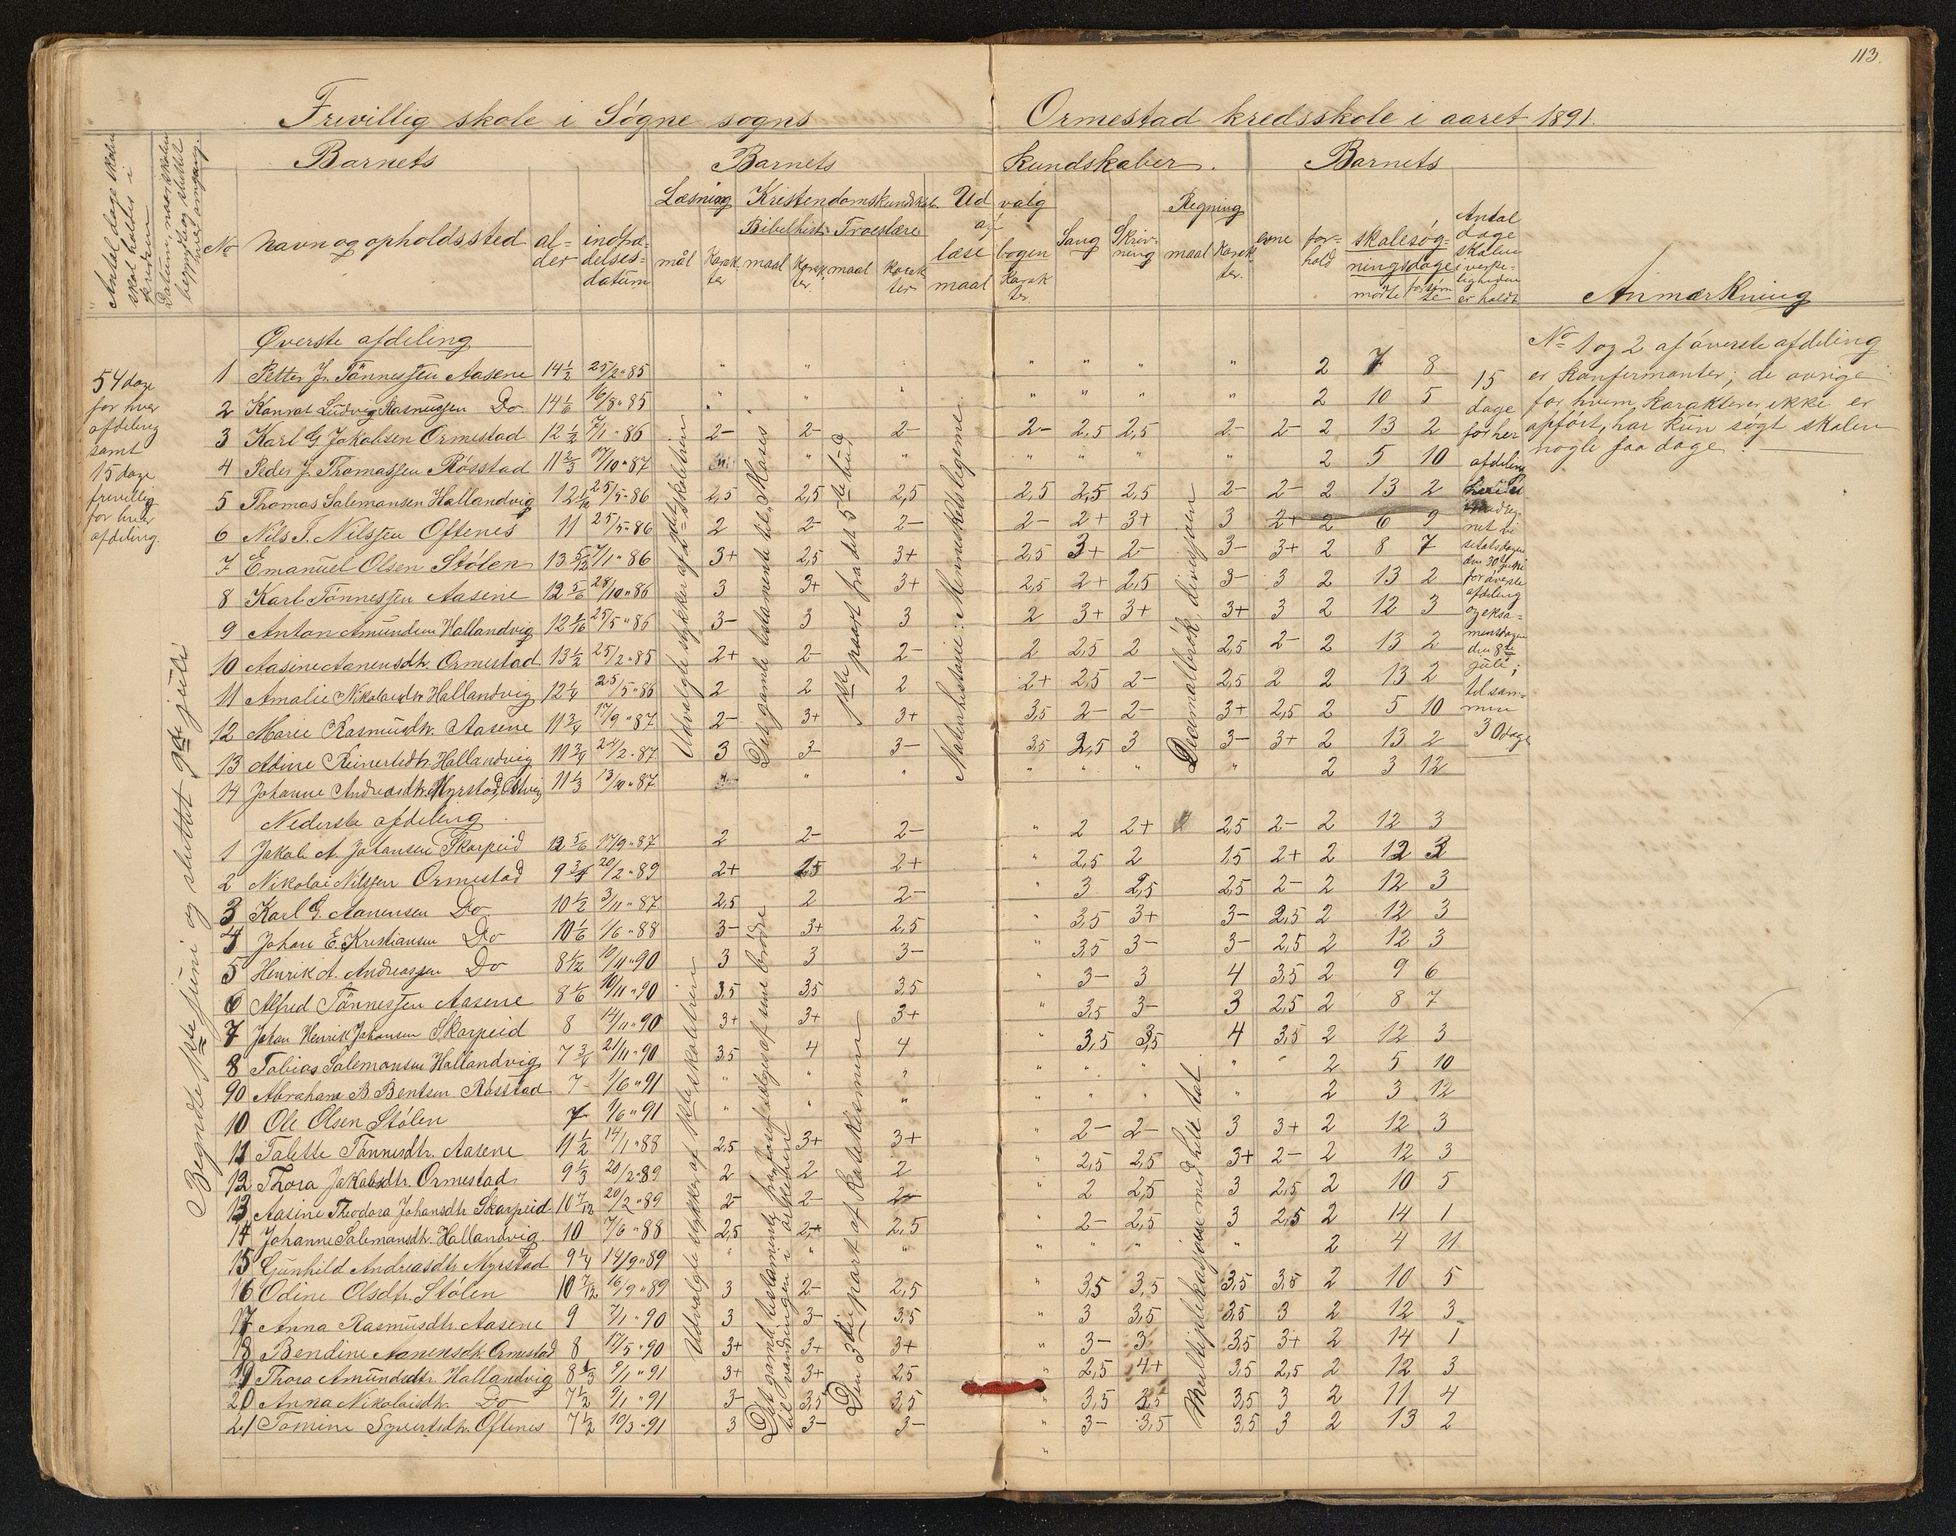 113.
Frivillig skole i Søgne sogns Ormestad kredsskole i aaret 1891.
Barnets Barnets kundskaber. Barnets
Antal dage skolen skal holdes i kredsen
Datum, naar skolen begyndte og sluttet hver omgang.
No navn og opholdssted al-der indfø-delses-datum
Læsning mål Karakter
Kristendomskundskab
Bibelhist. maal Karakter Troeslære maal karakter
Udvalg af læsebogen maal Karakter
Sang Skrivning Regning maal Karakter
evne forhold skolesøgningsdage mødte forsømte
Antal dage skolen i virkeligheden er holdt
Anmærkning
54 dage
for hver
afdeling
samt
15 dage
frivillig
for hver
afdeling.
Begyndte 1ste juni og sluttet 9de juli
Øverste afdeling
1 Petter J. Tønnessen Aasene 14 1/2 25/2 " 85 " " " " " " " 2 7 8
2 Konrat Ludvig Rasmussen Do 14 1/6 16/8 " 85 " " " " " " " 2 10 5
3 Karl G. Jakobsen Ormestad 12 1/2 7/1 " 86 2- 2- 2- 2- 2,5 2,5 2- 2- 2 13 2
4 Peder J. Thomassen Røsstad 11 2/3 17/10 " 87 " " " " " " 2 5 10
5 Thomas Salemonsen Hallandvig 25/5 " 86 2,5 2,5 2,5 2,5 2,5 2,5 2- 2- 2 13 2
6 Nils T. Nilssen Oftenes 11 25/5 " 86 2 2- 2- 2- 2+ 3+ 3 2+ 2 6 9
7 Emanuel Olsen Stølen 13 5/12 7/1 " 86 3+ 2,5 3+ 2,5 3+ 2- 3- 3+ 2 8 7
8 Karl Tønnessen Aasene 12 5/6 28/10 " 86 3 3+ 3+ 2,5 2+ 2,5 3- 3 2 13 2
9 Anton Amundsen Hallandvig 25/5 " 86 3- 3 3 2 3+ 3+ 3+ 3 2 12 3
10 Aasine Aanensdtr. Ormestad 13 1/2 25/2 " 85 2+ 2- 2- 2 2,5 2 2,5 2- 2 13 2
11 Amalie Nikolaidtr. Hallandvig 12 1/4 25/5 " 86 2 2 2 2+ 2,5 2- 2,5 2 2 13 2
12 Marie Rasmusdtr. Aasene 11 3/4 17/9 " 87 2- 3+ 3+ 3,5 2- 2- 3+ 2,5 2 5 10
13 Adine Reinertsdtr. Hallandvig 11 3/4 24/2 " 87 3 3- 3- 3,5 2,5 3 3- 3+ 2 13 2
14 Johanne Andreasdtr. Myrstad 11 1/3 13/10 " 87 " " " " " " 2 3 12
Udvalgte stykker af 2de skoletrin
Det gamle testamente til "Moses".
1ste paart fra det 5te bud
Naturhistorie: Menneskelegeme.
Decimalbrøk, divisjonen
Nederste afdeling
1 Jakob A. Johansen Skarpeid 12 5/6 17/9 " 87 2 2- 2- " 2 2+ 2,5 2- 2 12 3
2 Nikolai Nilssen Ormestad 9 3/4 20/2 " 89 2+ 2,5 2+ " 2,5 2 1,5 2+ 2 12 3
3 Karl G. Aanensen Do 10 1/2 3/11 " 87 2,5 2 2- " 3 2,5 2,5 2- 2 12 3
4 Johan E. Kristiansen Do 10 1/6 1/6 " 88 3- 3+ 2,5 " 3,5 3+ 3- 2,5 2 12 3
5 Henrik A. Andreassen Do 8 1/2 10/11 " 90 3 3 3- " 3,5 3- 3- 2,5 2 12 3
6 Alfred Tønnessen Aasene 8 1/6 10/11 " 90 3,5 3,5 3,5 " 3- 3 4 3,5 2 9 6
7 Johan Henrik Johansen Skarpeid 8 14/11 " 90 3+ 3+ 3+ " 3,5 3- 3 2,5 2 8 7
8 Tobias Salemonsen Hallandvig 7 3/4 21/11 " 90 3,5 4 4 " 3,5 3,5 4 3,5 2 12 3
9 Abraham B. Bentsen Røsstad 7 1/6 " 91 " " " " " " " " 2 5 10
10 Ole Olsen Stølen 7 1/6 " 91 " " " " " " " 2 3 12
11 Talette Tønnesdtr. Aasene 11 1/2 14/1 " 88 2,5 3+ 3+ " 2- 2- 3 3+ 2 12 3
12 Thora Jakobsdtr. Ormestad 9 1/3 20/2 " 89 2 2 2 " 2,5 2,5 3+ 2- 2 12 3
13 Aasine Theodora Johansdtr. Skarpeid 10 7/12 20/2 " 89 2- 2- 2- " 2 2,5 3 2,5 2 10 5
14 Johanne Salemonsdtr. Hallandvig 10 7/6 " 88 2,5 2+ 2,5 " 2- 2,5 3 2,5 2 14 1
15 Gunhild Andreasdtr. Myrstad 9 1/4 14/9 " 89 " " " " " " " 2 4 11
16 Odine Olsdtr. Stølen 10 7/12 16/9 " 89 3 2- 2,5 " 3,5 3,5 3,5 3,5 2 10 5
17 Anna Rasmusdtr. Aasene 9 7/1 " 90 3 3- 3,5 " 3 3,5 3,5 3 2 12 3
18 Bendine Aanensdtr. Ormestad 8 17/5 " 90 3+ 3+ 3+ " 3- 3 3,5 3+ 2 14 1
19 Thora Amundsdtr. Hallandvig 8 1/3 9/1 " 91 3+ 3+ 2,5 " 2,5 4+ 3,5 2,5 2 12 3
20 Anna Nikolaidtr. Do 7 1/2 9/1 " 91 3- 3,5 3,5 " 3,5 3,5 3,5 3 2 11 4
21 Tomine Syvertsdtr. Oftenes 7 1/2 10/3 " 91 3 3- 3- " 3- 3,5 3,5 3 2 13 2
Udvalgte stykker af 1ste skoletrin
Det gamle testamente fra Josef sælges af sine brødre til vandringen i ørkenen
Den 3die part af Katekismen
Multiplikasjon med hele tal.
15
dage
for hver
afdeling
iberegnet vi
sitatsdagen
den 30te juni
for øverste
afdeling
og eksa-
mensdagen
den 8de
juli;
tilsam-
men
30 dage
No 1 og 2 af øverste afdeling
er konfermanter; de øvrige
for hvem karakterer ikke er
opført, har kun søgt skolen
nogle faa dage.